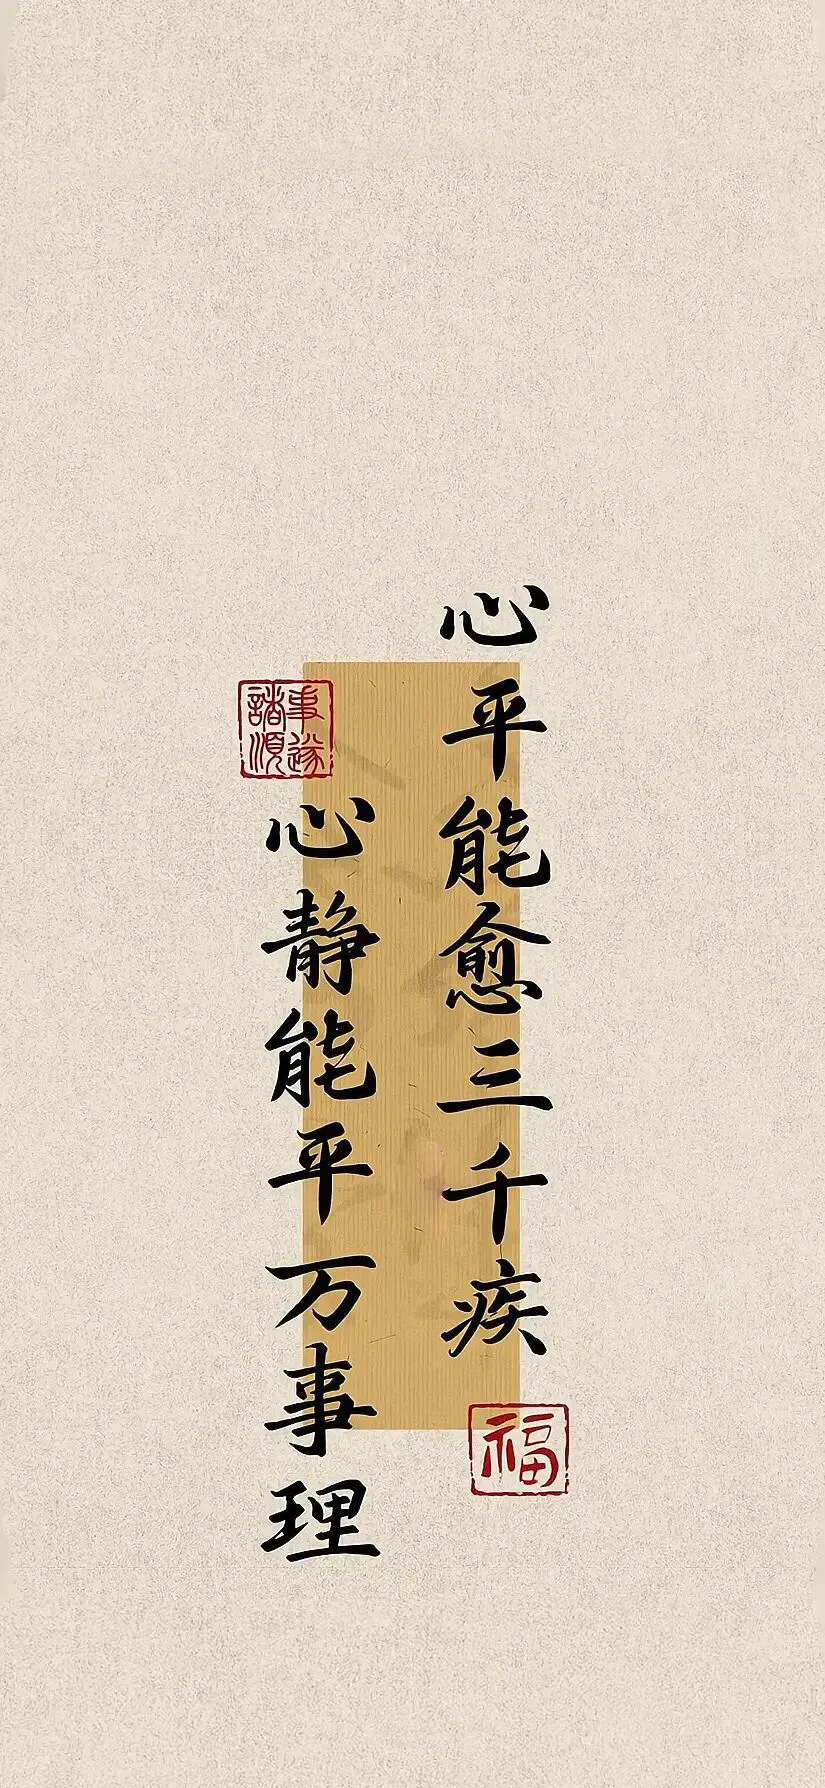 心平能愈三千疾
福
事遂
諸順
心静能平万事理